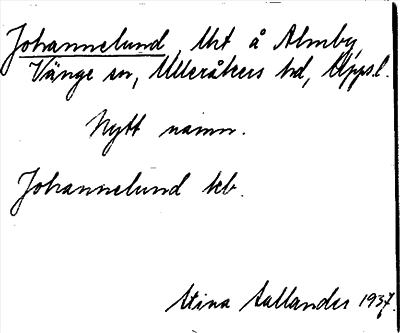 Johannelund, lht å Almby,
Vänge sn, Ulleråkers hd, Upps.l.
Nytt namn.
Johannelund kb.
Stina Sallander 1937.